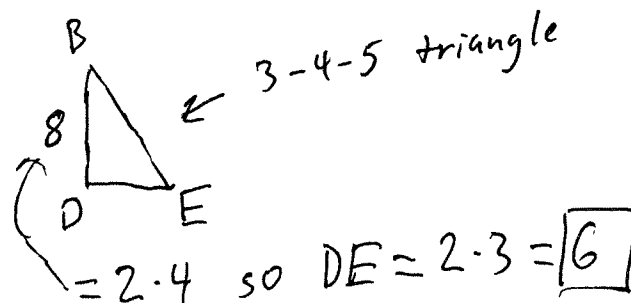 B
3-4-5 triangle
8
D E
= 2·4 so DE = 2·3 = 6